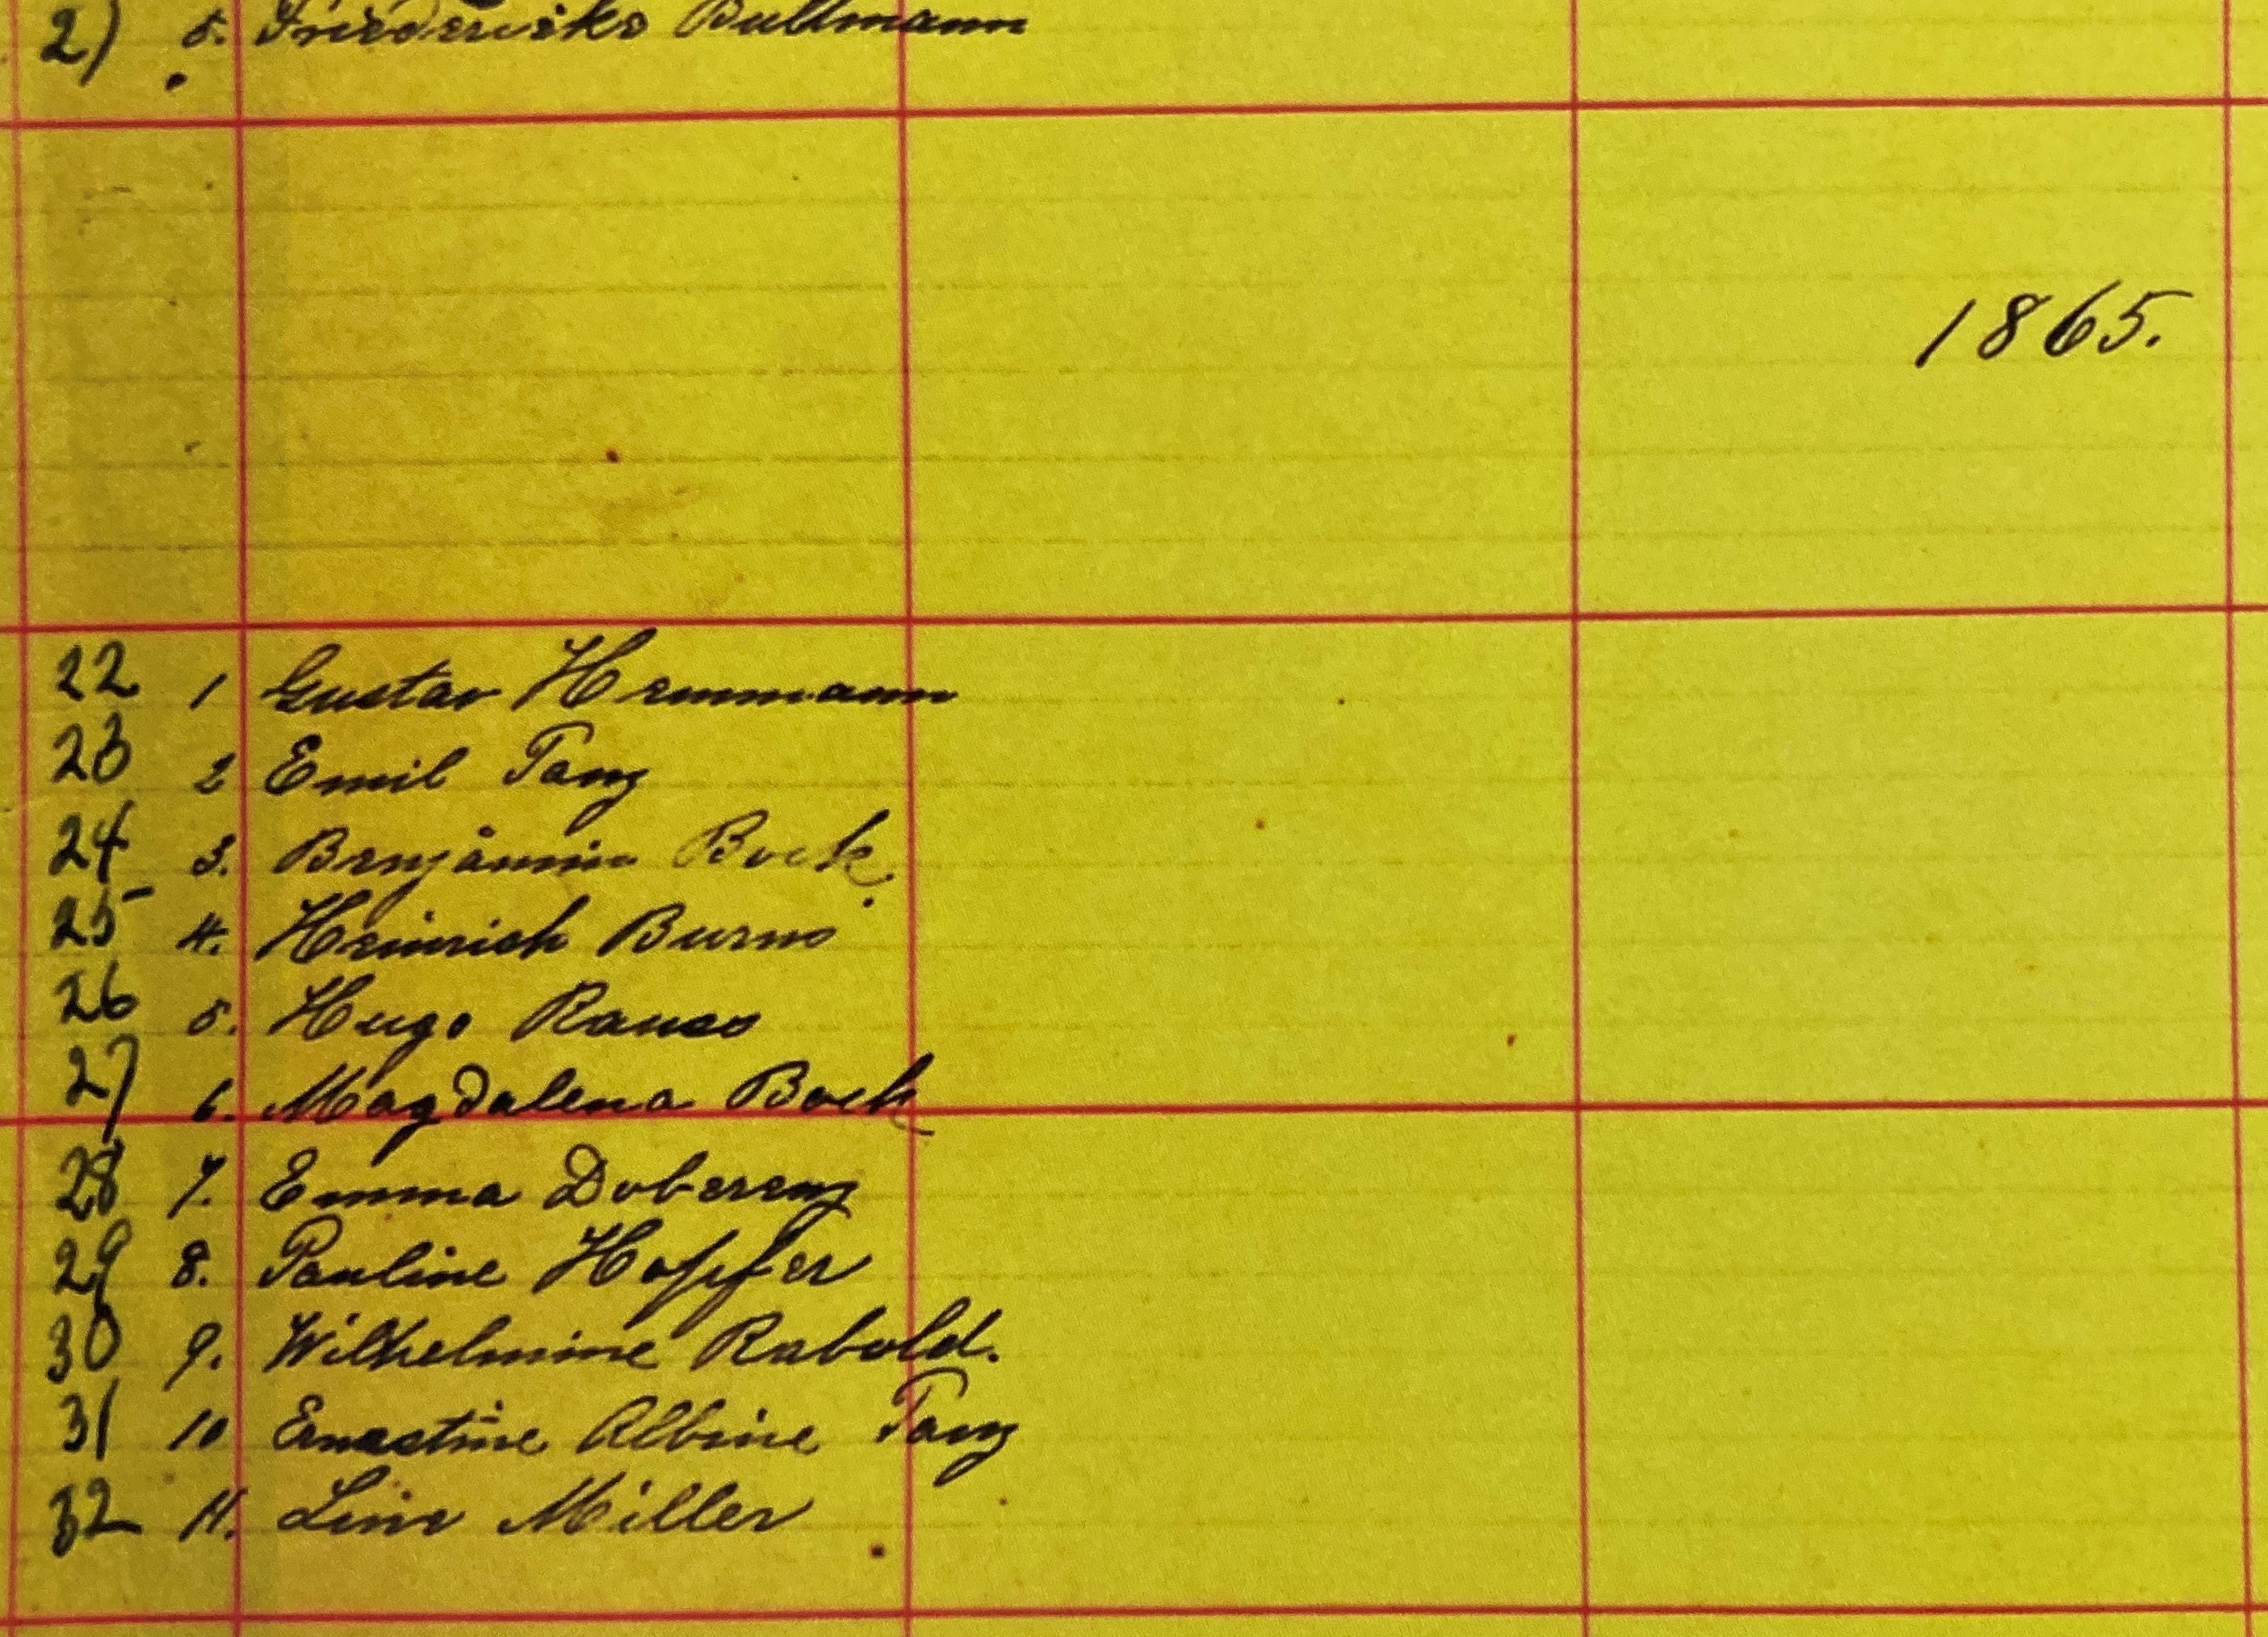 21 5. Friederike Bultmann
1865.
22 1 Gustav Hemmann
23 2 Emil Tanz
24 3. Benjamin Bock.
25 4. Heinrich Burno
26 5. Hugo
27 6. Magdalena Bock
28 7. Emma Doberenz
29 8. Pauline Hopfer
30 9. Wilhelmine Rabold.
31 10 Ernestine Albine Tanz
32 11. Line Miller